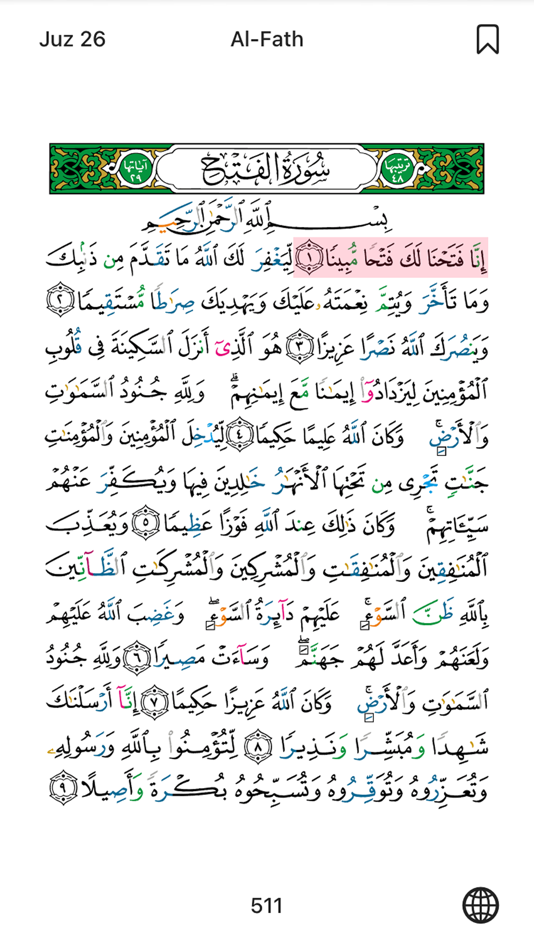 Juz 26
Al-Fath
ترتيبها ٤٨
سُورَةُ الفَتْحِ
آياتها ٢٩
بِسْمِ اللَّهِ الرَّحْمَٰنِ الرَّحِيمِ
إِنَّا فَتَحْنَا لَكَ فَتْحًا مُّبِينًا ١ لِّيَغْفِرَ لَكَ اللَّهُ مَا تَقَدَّمَ مِن ذَنۢبِكَ
وَمَا تَأَخَّرَ وَيُتِمَّ نِعْمَتَهُۥ عَلَيْكَ وَيَهْدِيَكَ صِرَٰطًا مُّسْتَقِيمًا ٢
وَيَنصُرَكَ اللَّهُ نَصْرًا عَزِيزًا ٣ هُوَ الَّذِىٓ أَنزَلَ السَّكِينَةَ فِى قُلُوبِ
الْمُؤْمِنِينَ لِيَزْدَادُوٓا۟ إِيمَٰنًا مَّعَ إِيمَٰنِهِمْ ۗ وَلِلَّهِ جُنُودُ السَّمَٰوَٰتِ
وَالْأَرْضِ ۚ وَكَانَ اللَّهُ عَلِيمًا حَكِيمًا ٤ لِّيُدْخِلَ الْمُؤْمِنِينَ وَالْمُؤْمِنَٰتِ
جَنَّٰتٍ تَجْرِى مِن تَحْتِهَا الْأَنْهَٰرُ خَٰلِدِينَ فِيهَا وَيُكَفِّرَ عَنْهُمْ
سَيِّـَٔاتِهِمْ ۚ وَكَانَ ذَٰلِكَ عِندَ اللَّهِ فَوْزًا عَظِيمًا ٥ وَيُعَذِّبَ
الْمُنَٰفِقِينَ وَالْمُنَٰفِقَٰتِ وَالْمُشْرِكِينَ وَالْمُشْرِكَٰتِ الظَّآنِّينَ
بِاللَّهِ ظَنَّ السَّوْءِ ۚ عَلَيْهِمْ دَآئِرَةُ السَّوْءِ ۖ وَغَضِبَ اللَّهُ عَلَيْهِمْ
وَلَعَنَهُمْ وَأَعَدَّ لَهُمْ جَهَنَّمَ ۖ وَسَآءَتْ مَصِيرًا ٦ وَلِلَّهِ جُنُودُ
السَّمَٰوَٰتِ وَالْأَرْضِ ۚ وَكَانَ اللَّهُ عَزِيزًا حَكِيمًا ٧ إِنَّآ أَرْسَلْنَٰكَ
شَٰهِدًا وَمُبَشِّرًا وَنَذِيرًا ٨ لِّتُؤْمِنُوا۟ بِاللَّهِ وَرَسُولِهِۦ
وَتُعَزِّرُوهُ وَتُوَقِّرُوهُ وَتُسَبِّحُوهُ بُكْرَةً وَأَصِيلًا ٩
511